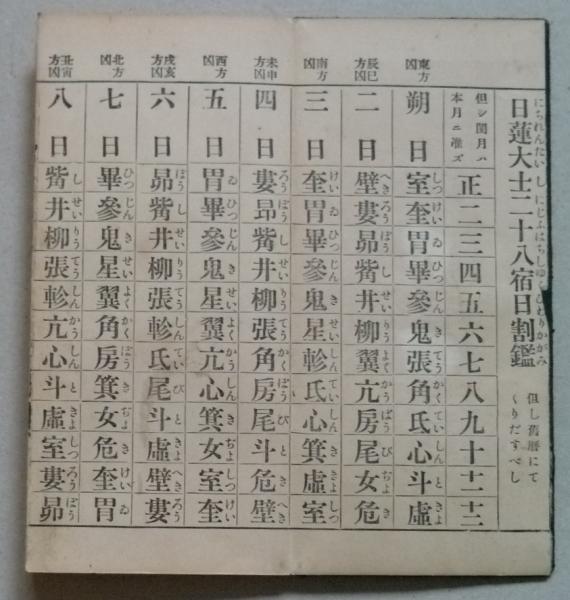 にちれんだいしにじふはちしゆくひわりかがみ
日蓮大士二十八宿日割鑑
但し舊暦にて
くりだすべし
但シ閏月ハ
本月ニ准ズ
正二三四五六七八九十十一十二
東方凶
朔日室奎胃畢參鬼張角氐心斗虚
辰巳方凶
二日壁婁昴觜井柳翼亢房尾女危
南方凶
三日奎胃畢參鬼星軫氐心箕虚室
未申方凶
四日婁昴觜井柳張角房尾斗危壁
西方凶
五日胃畢參鬼星翼亢心箕女室奎
戌亥方凶
六日昴觜井柳張軫氐尾斗虚壁婁
北方凶
七日畢參鬼星翼角房箕女危奎胃
丑寅方凶
八日觜井柳張軫亢心斗虚室婁昴